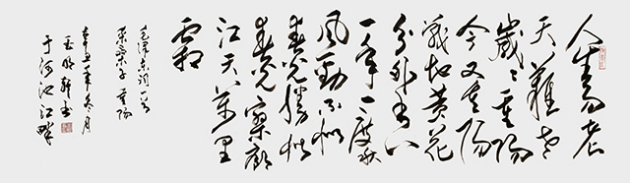 人生易老
天难老
岁岁重阳
今又重阳
战地黄花
分外香
一年一度秋
风劲不似
春光胜似
春光寥廓
江天万里
霜
毛泽东词一首
采桑子重阳
辛丑年冬月
于河池江畔